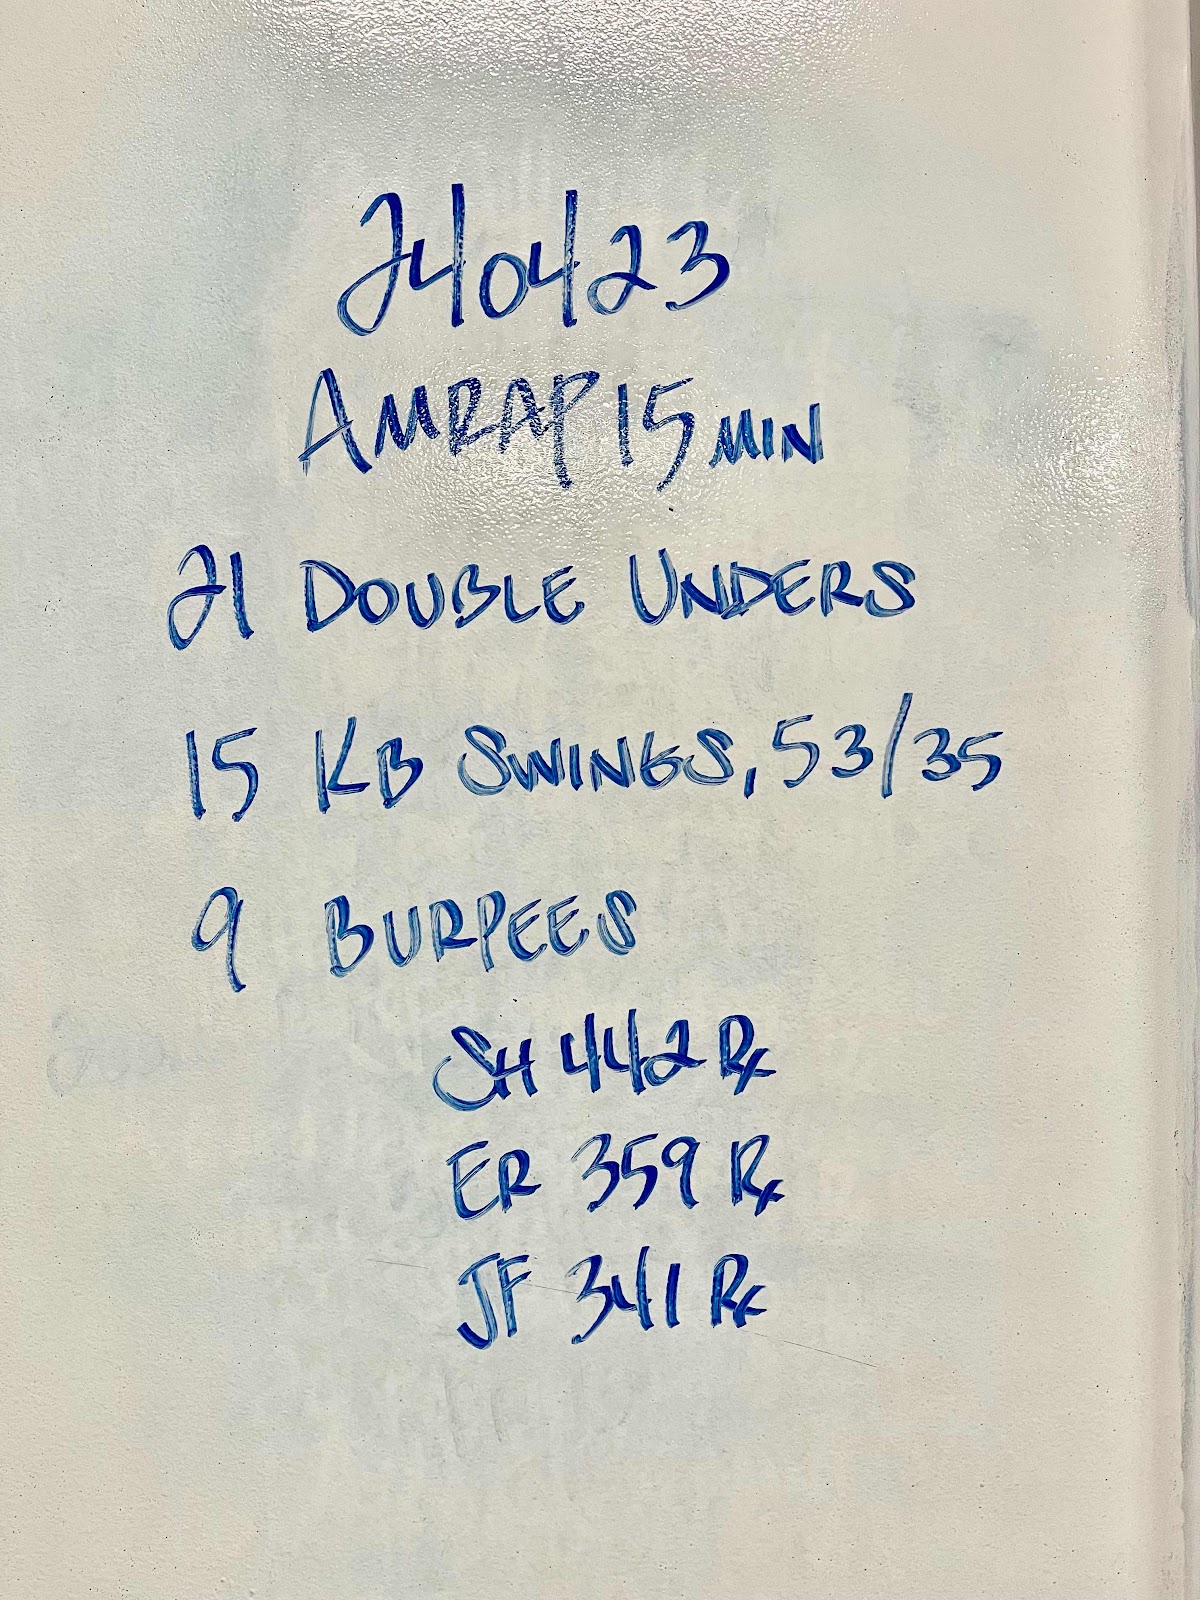 240423
AMRAP 15 MIN
21 DOUBLE UNDERS
15 KB SWINGS, 53/35
9 BURPEES
SH 442 Rx
ER 359 Rx
JF 341 Rx